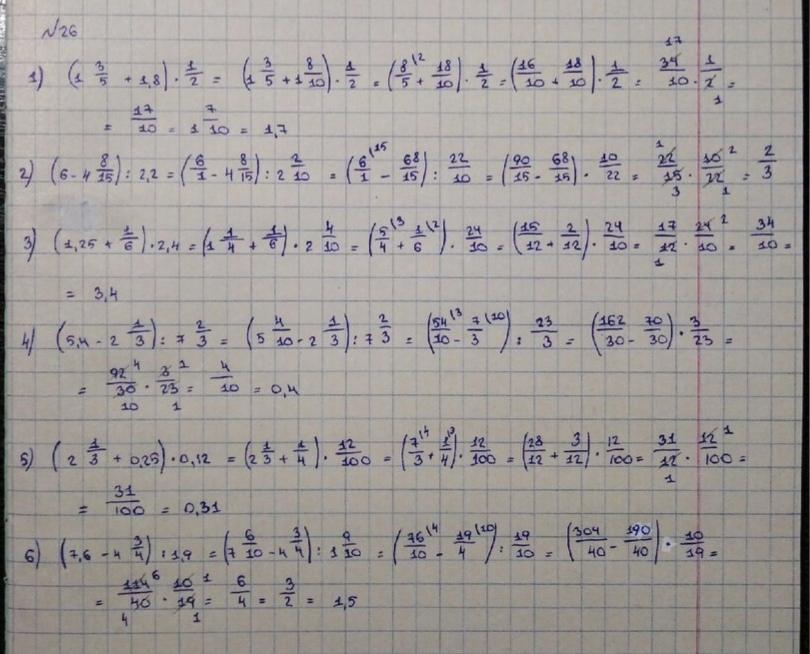 №26
1) (1 3/5 + 1,8) · 1/2 = (1 3/5 + 1 8/10) · 1/2 = (8/5 \2 + 18/10) · 1/2 = (16/10 + 18/10) · 1/2 = 34/10 17 · 1/2 1 =
= 17/10 = 1 7/10 = 1,7
2) (6 - 4 8/15) : 2,2 = (6/1 - 4 8/15) : 2 2/10 = (6/1 \15 - 68/15) : 22/10 = (90/15 - 68/15) · 10/22 = 22/15 1 3 · 10/22 2 1 = 2/3
3) (1,25 + 1/6) · 2,4 = (1 1/4 + 1/6) · 2 4/10 = (5/4 \3 + 1/6 \2) · 24/10 = (15/12 + 2/12) · 24/10 = 17/12 1 · 24/10 2 = 34/10 =
= 3,4
4) (5,4 - 2 1/3) : 7 2/3 = (5 4/10 - 2 1/3) : 7 2/3 = (54/10 \3 - 7/3 \10) : 23/3 = (162/30 - 70/30) · 3/23 =
= 92/30 4 10 · 3/23 1 1 = 4/10 = 0,4
5) (2 1/3 + 0,25) · 0,12 = (2 1/3 + 1/4) · 12/100 = (7/3 \4 + 1/4 \3) · 12/100 = (28/12 + 3/12) · 12/100 = 31/12 1 · 12/100 1 =
= 31/100 = 0,31
6) (7,6 - 4 3/4) : 1,9 = (7 6/10 - 4 3/4) : 1 9/10 = (76/10 \4 - 19/4 \10) : 19/10 = (304/40 - 190/40) · 10/19 =
= 114/40 6 4 · 10/19 1 1 = 6/4 = 3/2 = 1,5